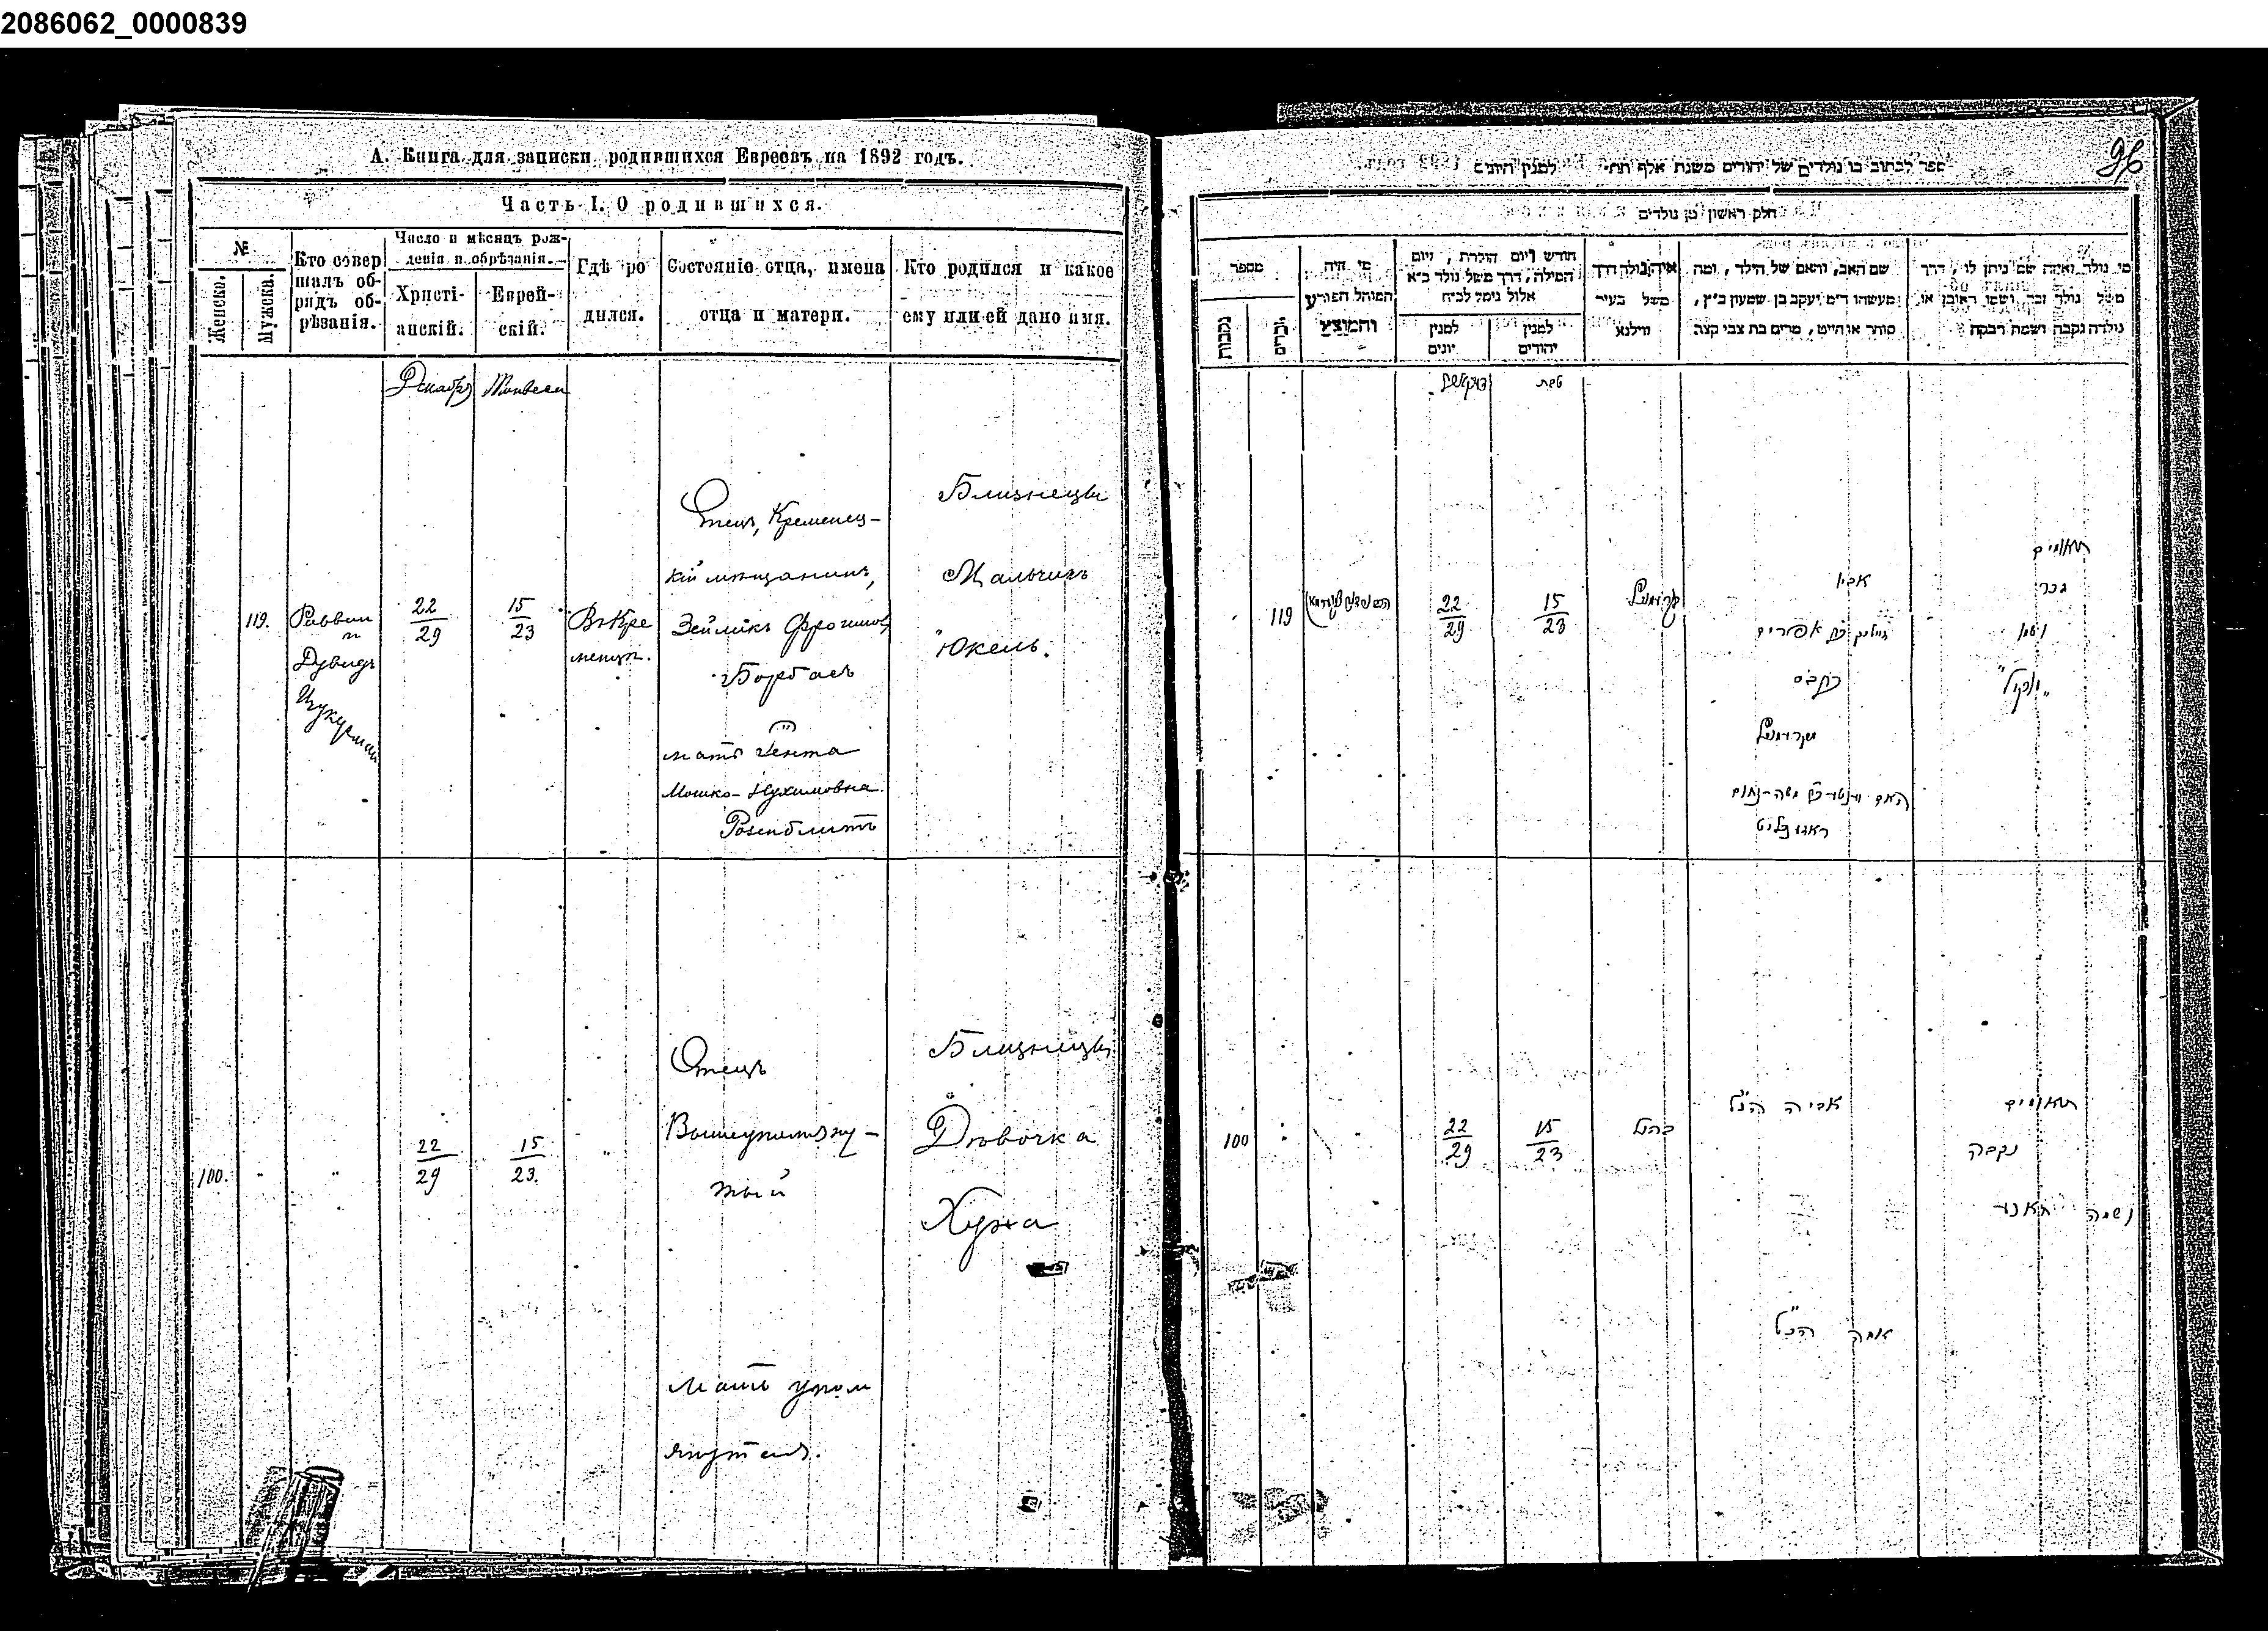 2086062_0000839
А. Книга для записки родившихся Евреевъ на 1892 годъ.
Часть I. О родившихся.
№
Женска.
Мужска.
Кто совер
шалъ об-
рядъ об-
рѣзанія.
Число и мѣсяцъ рож-
денія и обрѣзанія.
Христі-
анскій.
Еврей-
скій.
Гдѣ ро
дился.
Состояніе отца, имена
отца и матери.
Кто родился и какое
ему или ей дано имя.
Декабрь
119.
Раввин
Дувидъ
Цукерман
22
29
15
23
Въ Кре
менцѣ.
Отецъ, Кременец-
кій мѣщанинъ,
Зейликъ Фроимов
Борбасъ
мать Іента
Мошко-Нухимовна
Розенблитъ
Близнецы
Мальчикъ
Юкель.
100.
"
"
22
29
15
23.
"
Отецъ
Вышеупомяну-
тый
мать упом
янутая.
Близнецы
Дѣвочка
96
ספר לכתוב בו נולדים של יהודים משנת אלף תת למנין היונים
חלק ראשון מן נולדים
מספר
נקבות
זכרים
מי היה
המוהל הפורע
והמוצץ
חודש ויום הולדת, ויום
המילה, דרך משל נולד כ״א
אלול נימל לכ״ח
למנין
יונים
למנין
יהודים
איה נולד דרך
משל בעיר
ווילנא
שם האב, והאם של הילד, ומה
מעשהו ד״מ יעקב בן שמעון כ״ץ,
סוחר או חייט, מרים בת צבי קצב
מי נולד ואיזה שם ניתן לו, דרך
משל נולד זכר ושמו ראובן או,
נולדה נקבה ושמה רבקה
טבת
119
22
29
15
23
קרעמניץ
אביו
זייליק בן אפרים
מקרעמניץ
האם יענטע בת משה-נחום
ראזנבליט
תאומים
זכר
ושמו
"יאקיל"
100
22
29
15
23
כהנ״ל
אביה הנ״ל
אמה הנ״ל
תאומים
נקבה
ושמה